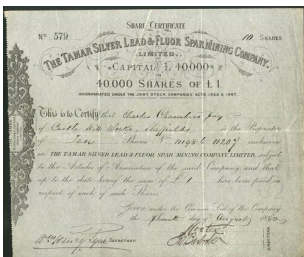 SHARE CERTIFICATE
No 579 10 SHARES
THE TAMAR SILVER LEAD & FLUOR SPAR MINING COMPANY,
LIMITED.
CAPITAL £40,000
IN
40,000 SHARES OF £1
INCORPORATED UNDER THE JOINT STOCK COMPANIES' ACTS 1862 & 1867.
This is to Certify that Charles Chambers
of Castle Hill is the Proprietor
of Ten Shares 11198 to 11207 inclusive
in THE TAMAR SILVER LEAD & FLUOR SPAR MINING COMPANY, LIMITED, subject
to the Articles of Association of the said Company and that
up to this date having the sum of £1 have been paid in
respect of each of such Shares.
Given under the Common Seal of the Company
the day of August 1880
SECRETARY
DIRECTORS